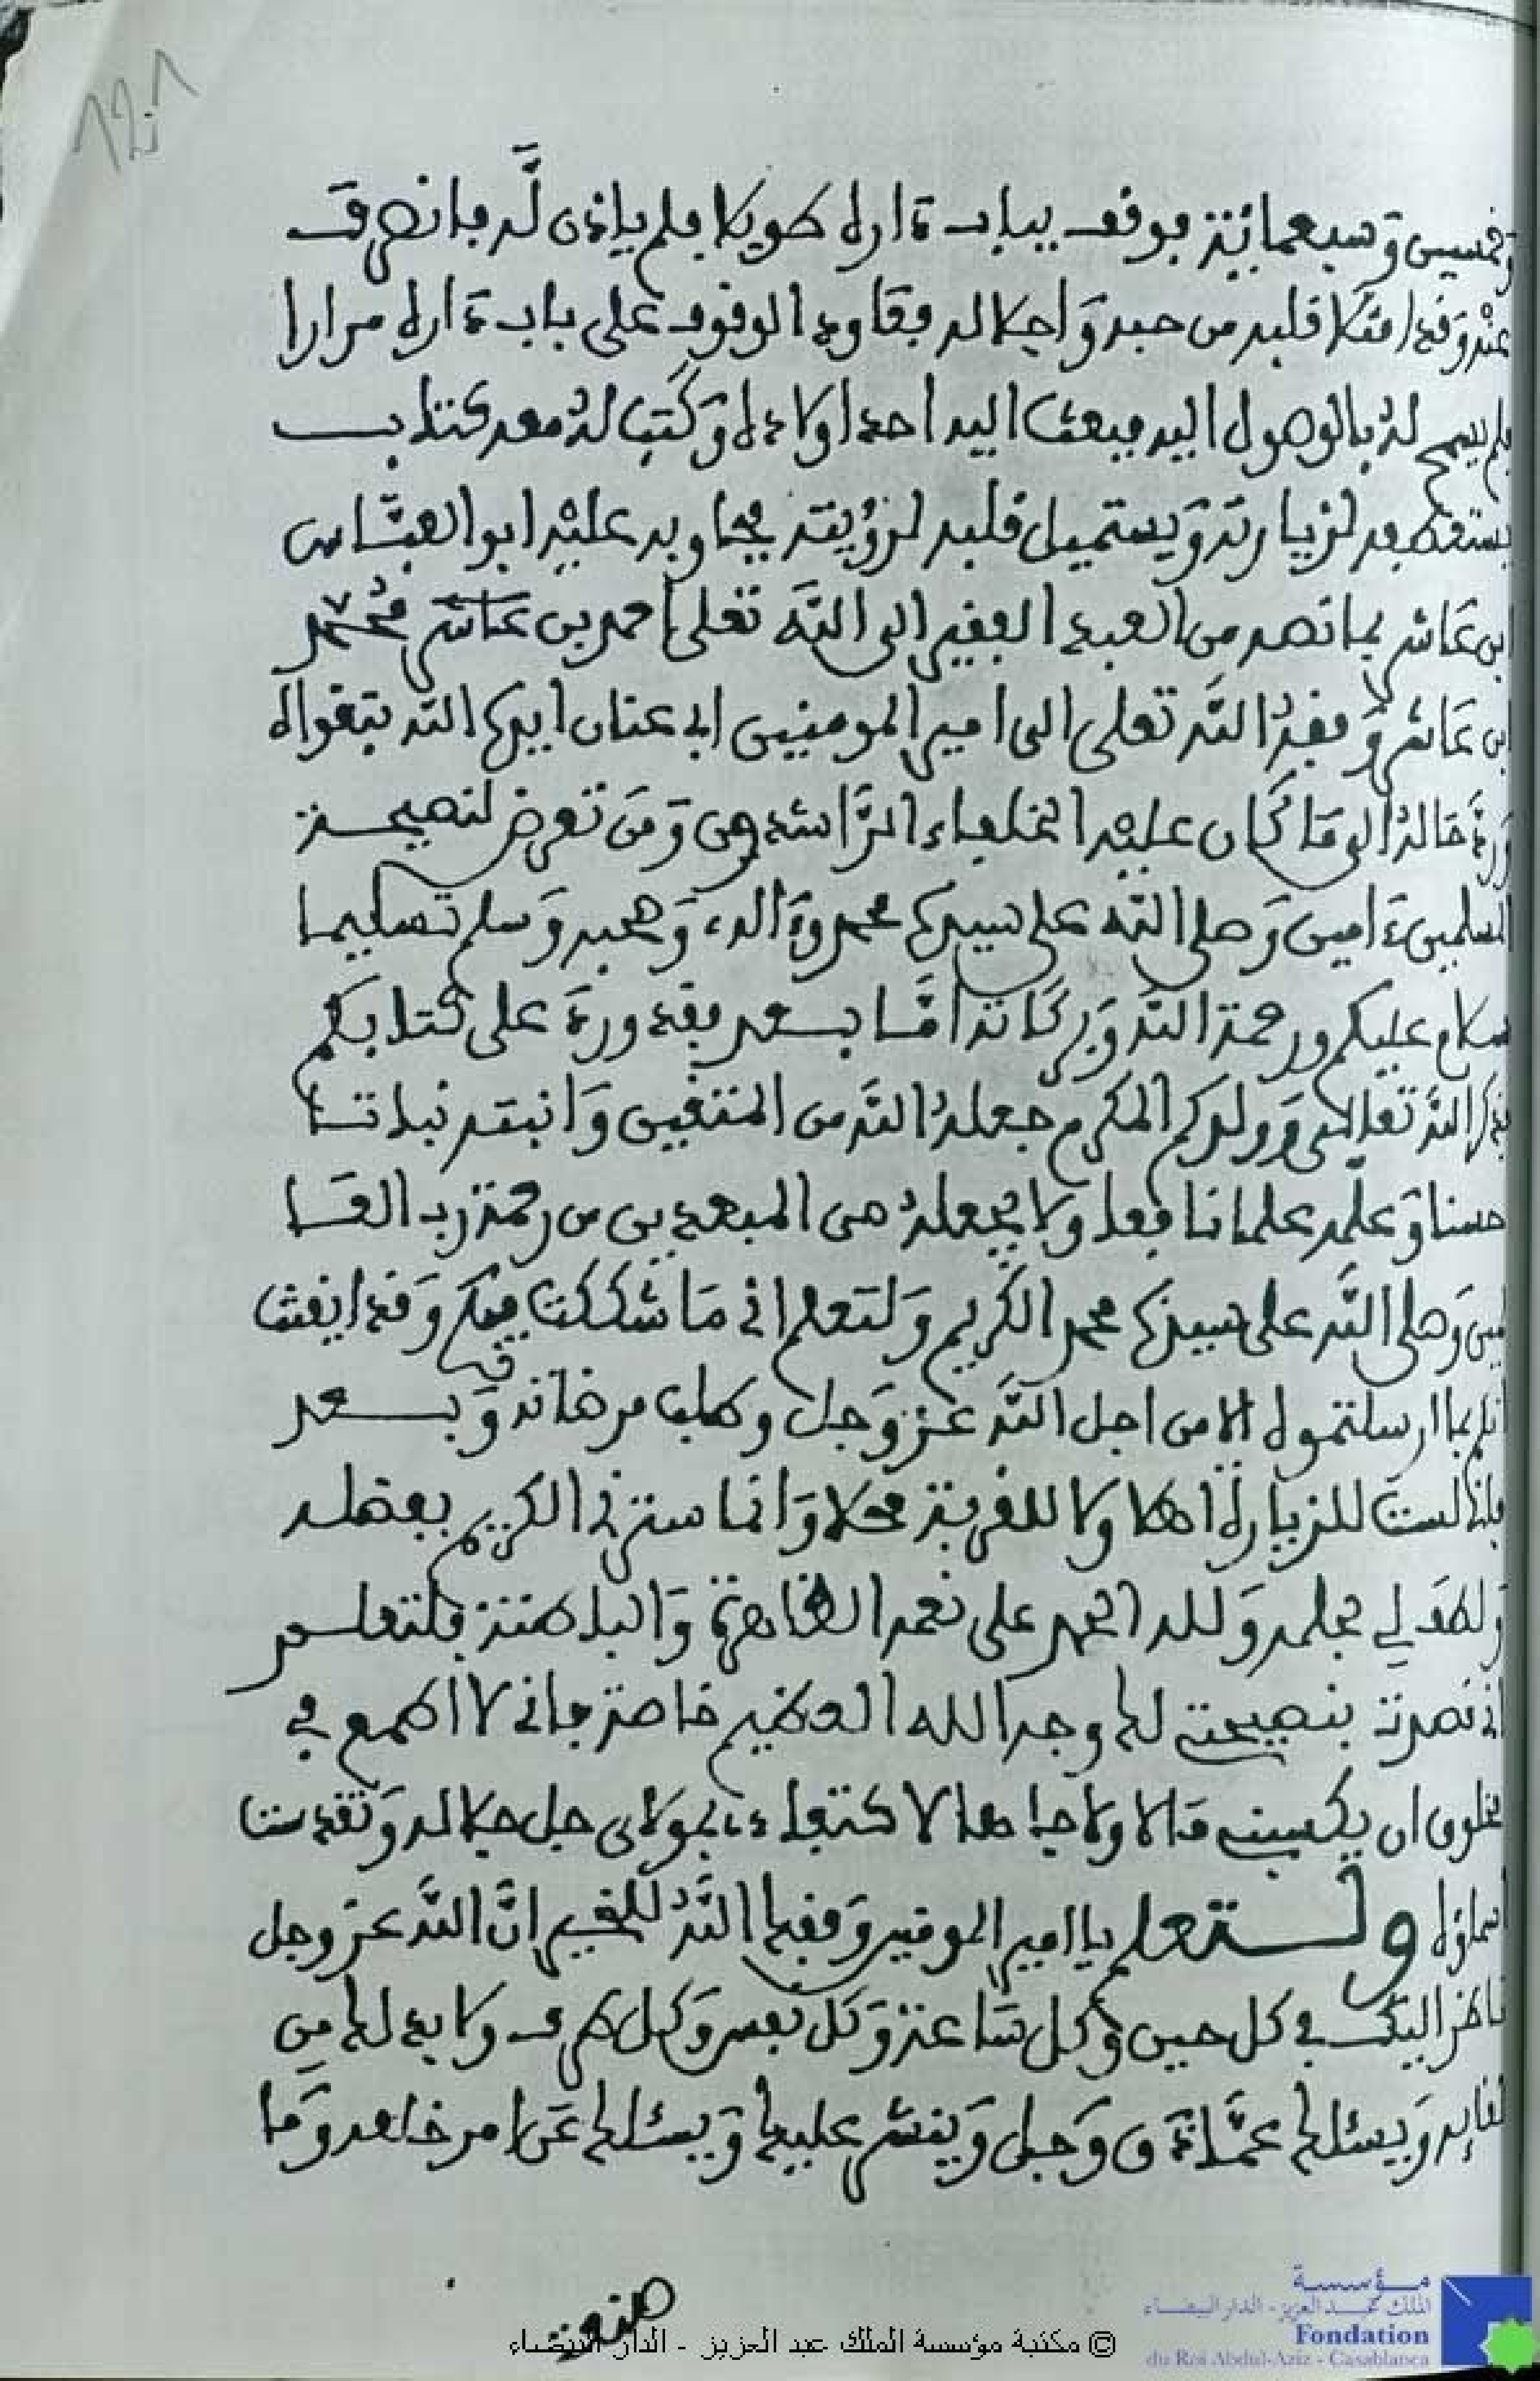 وخمسين وسبعمائة فوقف بباب داره طويلا فلم ياذن له فانصرف
عنه وقد امتلا قلبه من حبه واجلاله فعاود الوقوف على باب داره مرارا
فلم يسمح له بالوصول اليه فبعث اليه احد اولاده وكتب له معه كتاب
يستعطفه لزيارته ويستميل قلبه لرؤيته فجاوبه عليه ابو العباس
ابن عاشر بما نصه من العبد الفقير الى الله تعلى احمد بن محمد
ابن عاشر وفقه الله تعلى الى امير المومنين ابي عنان ايده الله بتقواه
ورد حاله الى ما كان عليه الخلفاء الراشدون ومن تعرض لنصيحة
المسلمين ءامين وصلى الله على سيدنا محمد وءاله وصحبه وسلم تسليما
سلام عليكم ورحمة الله وبركاته اما بعد فقد ورد على كتابكم
الله تعلى وولدكم المكرم جعله الله من المتقين وانبته نباتا
حسنا وعلمه علما نافعا ولا يجعله من المبعدين من رحمة رب العا
لمين وصلى الله على سيدنا محمد الكريم ولتعلم اني ما شككت فيكم وقد ايقنت
انكم ما ارسلتموه الا من اجل الله عز وجل وطلب مرضاته وبعد
فاني لست للزيارة اهلا ولا للقربة محلا وانما سترني الكريم بفضله
ولطف لي بحلمه ولله الحمد على نعمه الظاهرة والباطنة فلتعلم
اني قصدت بنصيحتي لك وجه الله العظيم خاصة فاني لا اطمع في
مخلوق ان يكسبني مالا ولا جاها لاكتفاءي بمولاي جل جلاله وتقدست
اسماؤه ولتعلم يا امير المومنين وفقك الله للخير ان الله عز وجل
ناظر اليك في كل حين وكل ساعة وكل نفس وكل طرف ولا بد لك من
لقايه ويسئلك عما دق وجل ويفتش عليك ويسئلك عن امر خلقه وما
صنعت
© مكتبة مؤسسة الملك عبد العزيز - الدار البيضاء
مؤسسة
الملك عبد العزيز - الدار البيضاء
Fondation
du Roi Abdul-Aziz - Casablanca